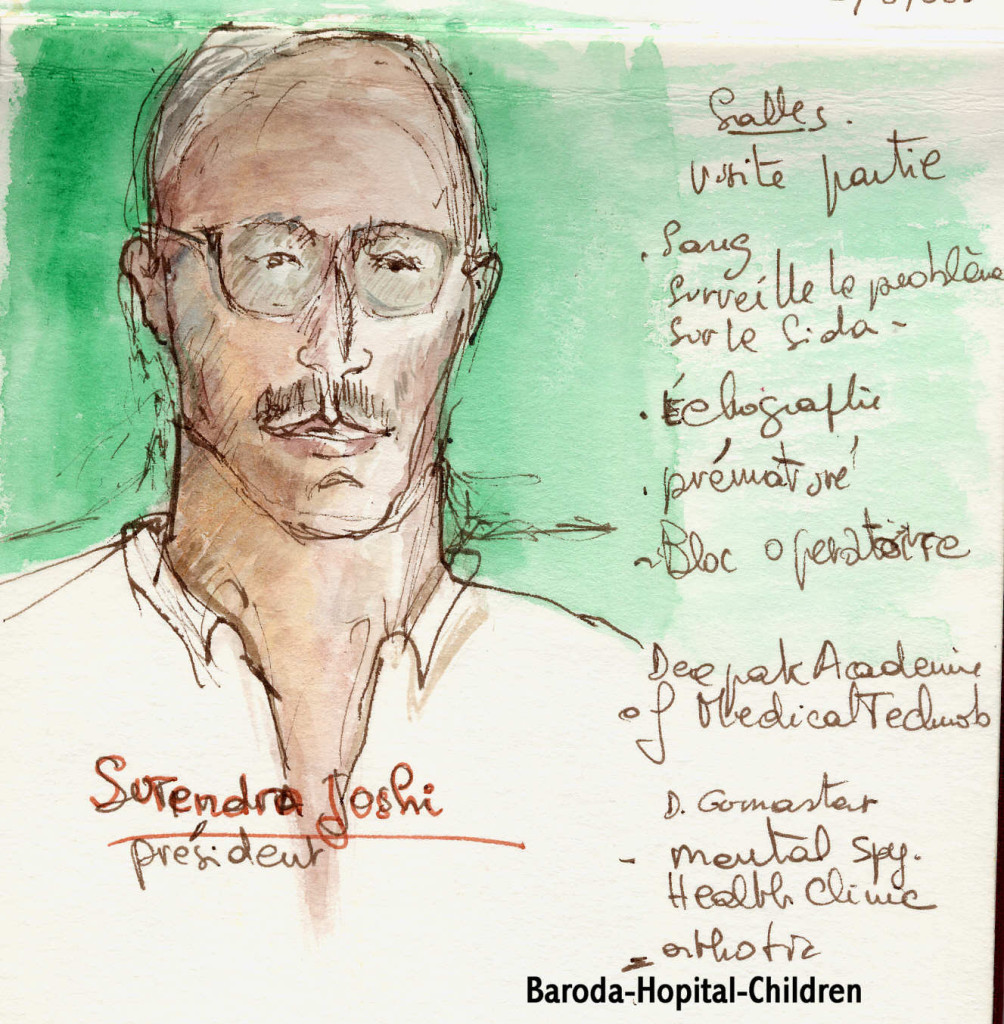 Salles.
visite partie
. Sang
surveille le problème
sur le Sida -
. Échographie
. prématuré
- Bloc opératoire
Deepak Academie
of Medical Technob
D. Gomastar
- mental spy.
Health Clinic
Surendra Joshi
président
Baroda-Hopital-Children